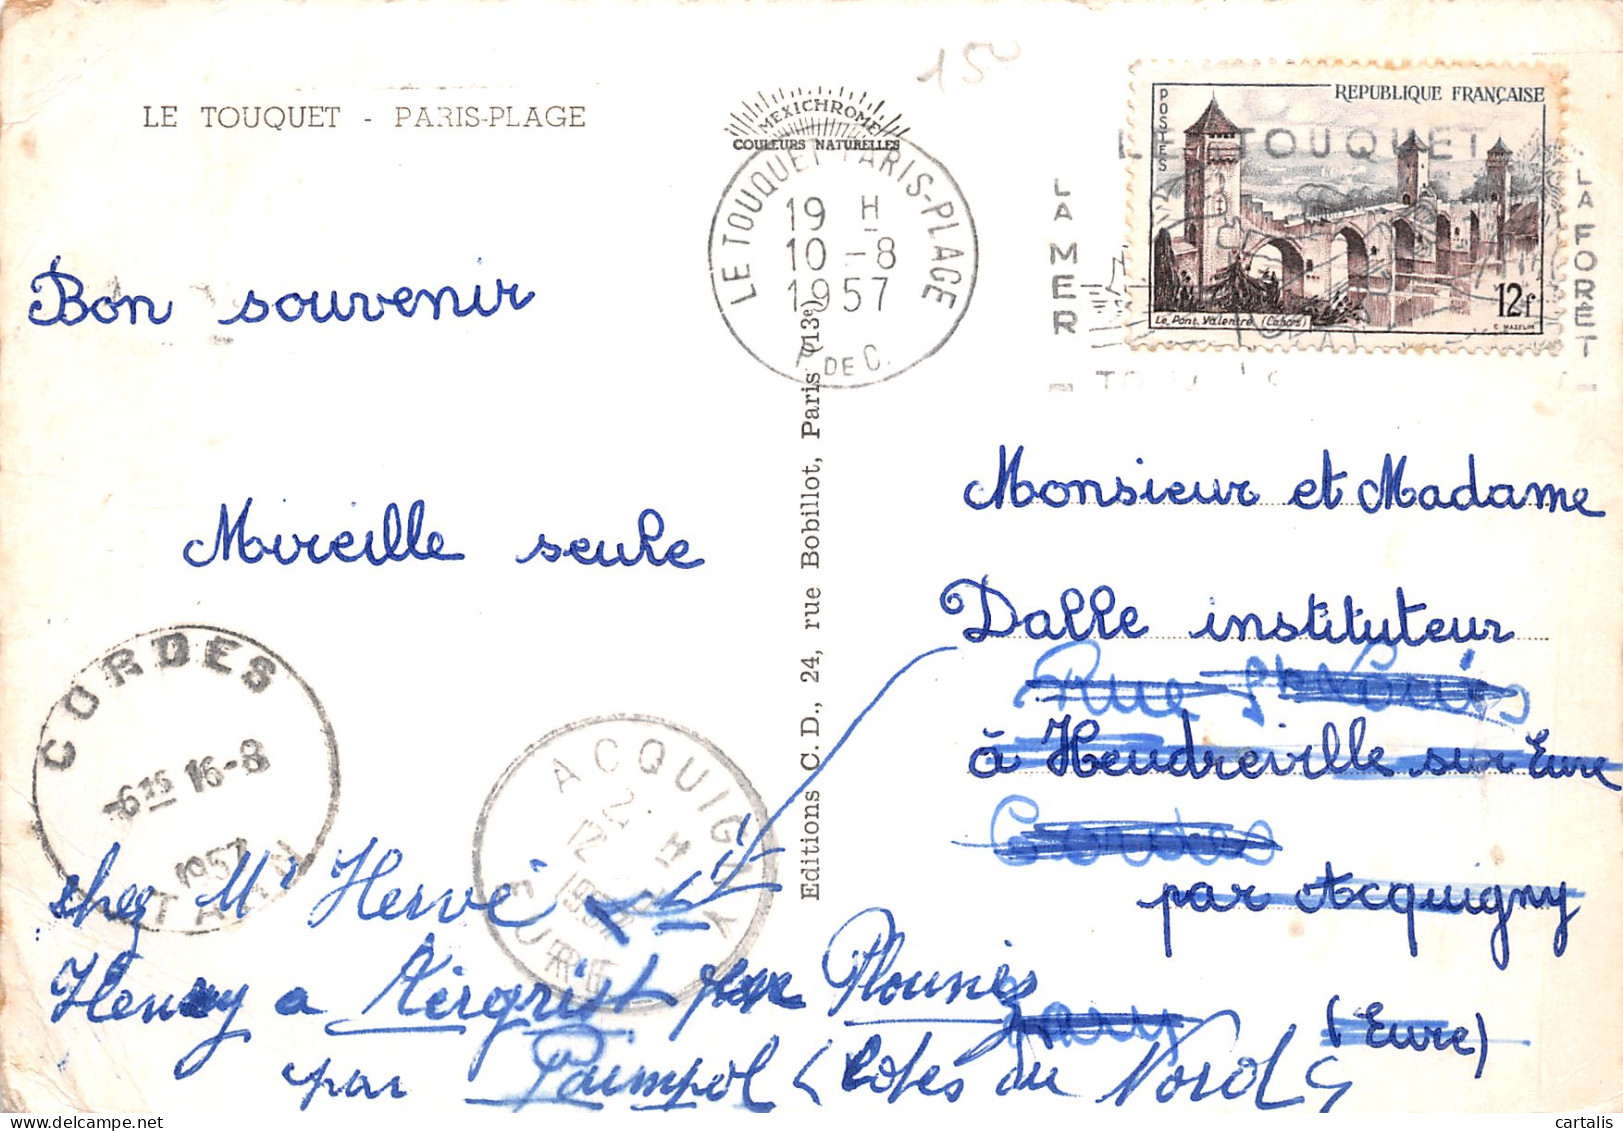 150
LE TOUQUET - PARIS-PLAGE
MEXICHROME
COULEURS NATURELLES
LE TOUQUET-PARIS-PLAGE
19 H
10 -8
1957
P. DE C.
LE TOUQUET
LA MER
LA FORET
POSTES
REPUBLIQUE FRANÇAISE
Le Pont Valentré (Cahors)
12f
Bon souvenir
Mireille seule
Editions C. D., 24, rue Bobillot, Paris (13e)
Monsieur et Madame
Dalle instituteur
Rue St Louis
à Heudreville sur Eure
Cordes
par Acquigny
(Eure)
CORDES
16-8
1957
TARN
ACQUIGNY
EURE
chez Mr Hervé
Henry a Kergrist par Plounez
par Paimpol (Cotes du Nord)
cartalis